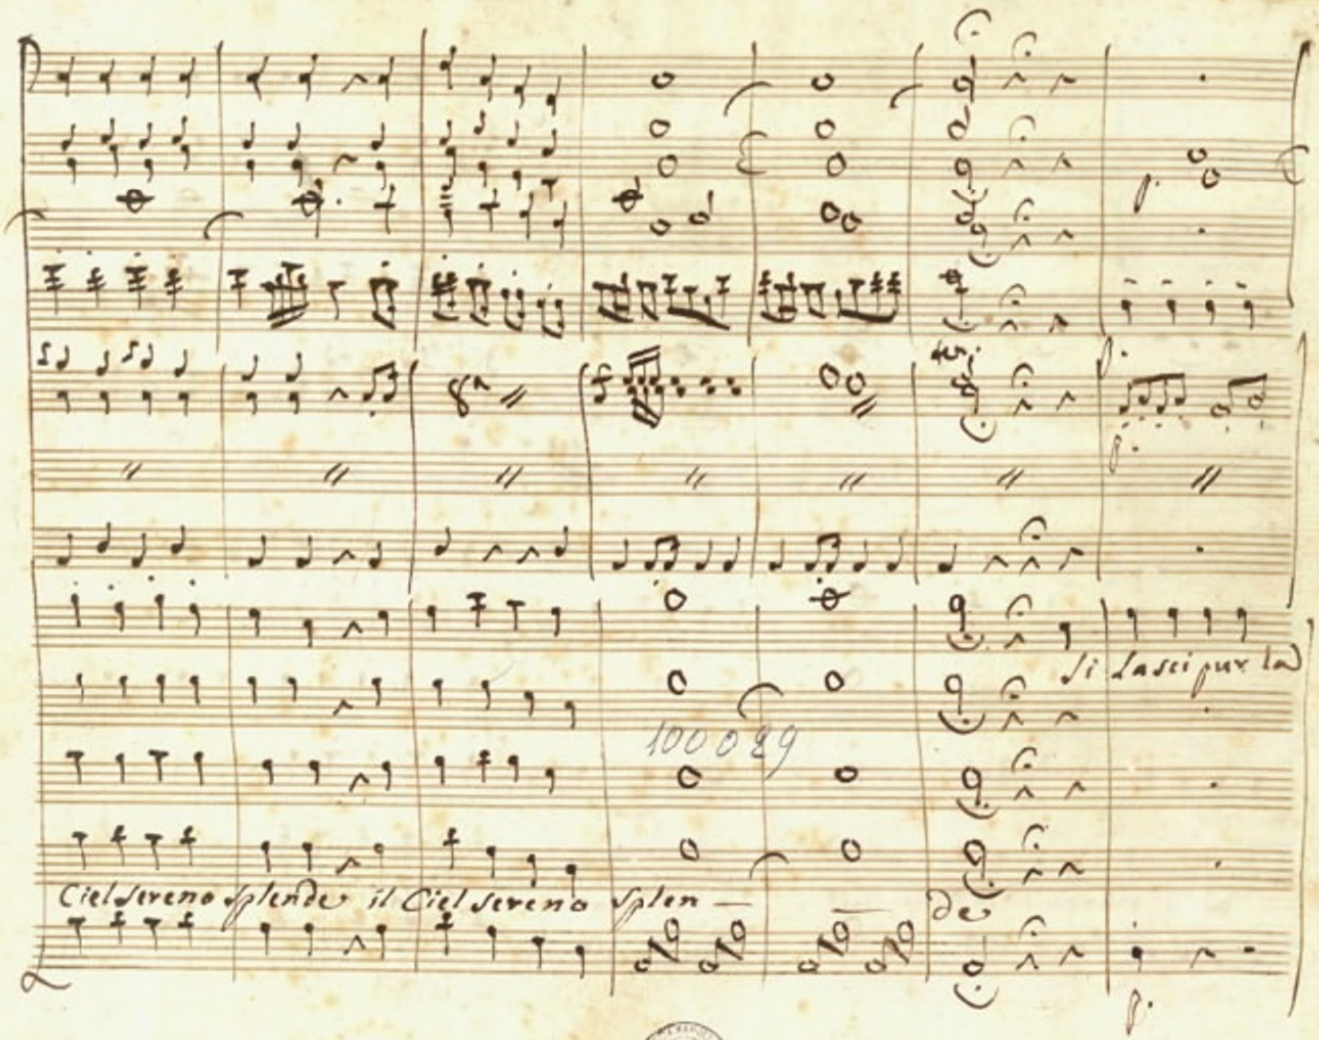 8ª
ten:
p:
p.
p.
Si Lasci pur la
100029
Ciel sereno splende il Ciel sereno splen — de
p.